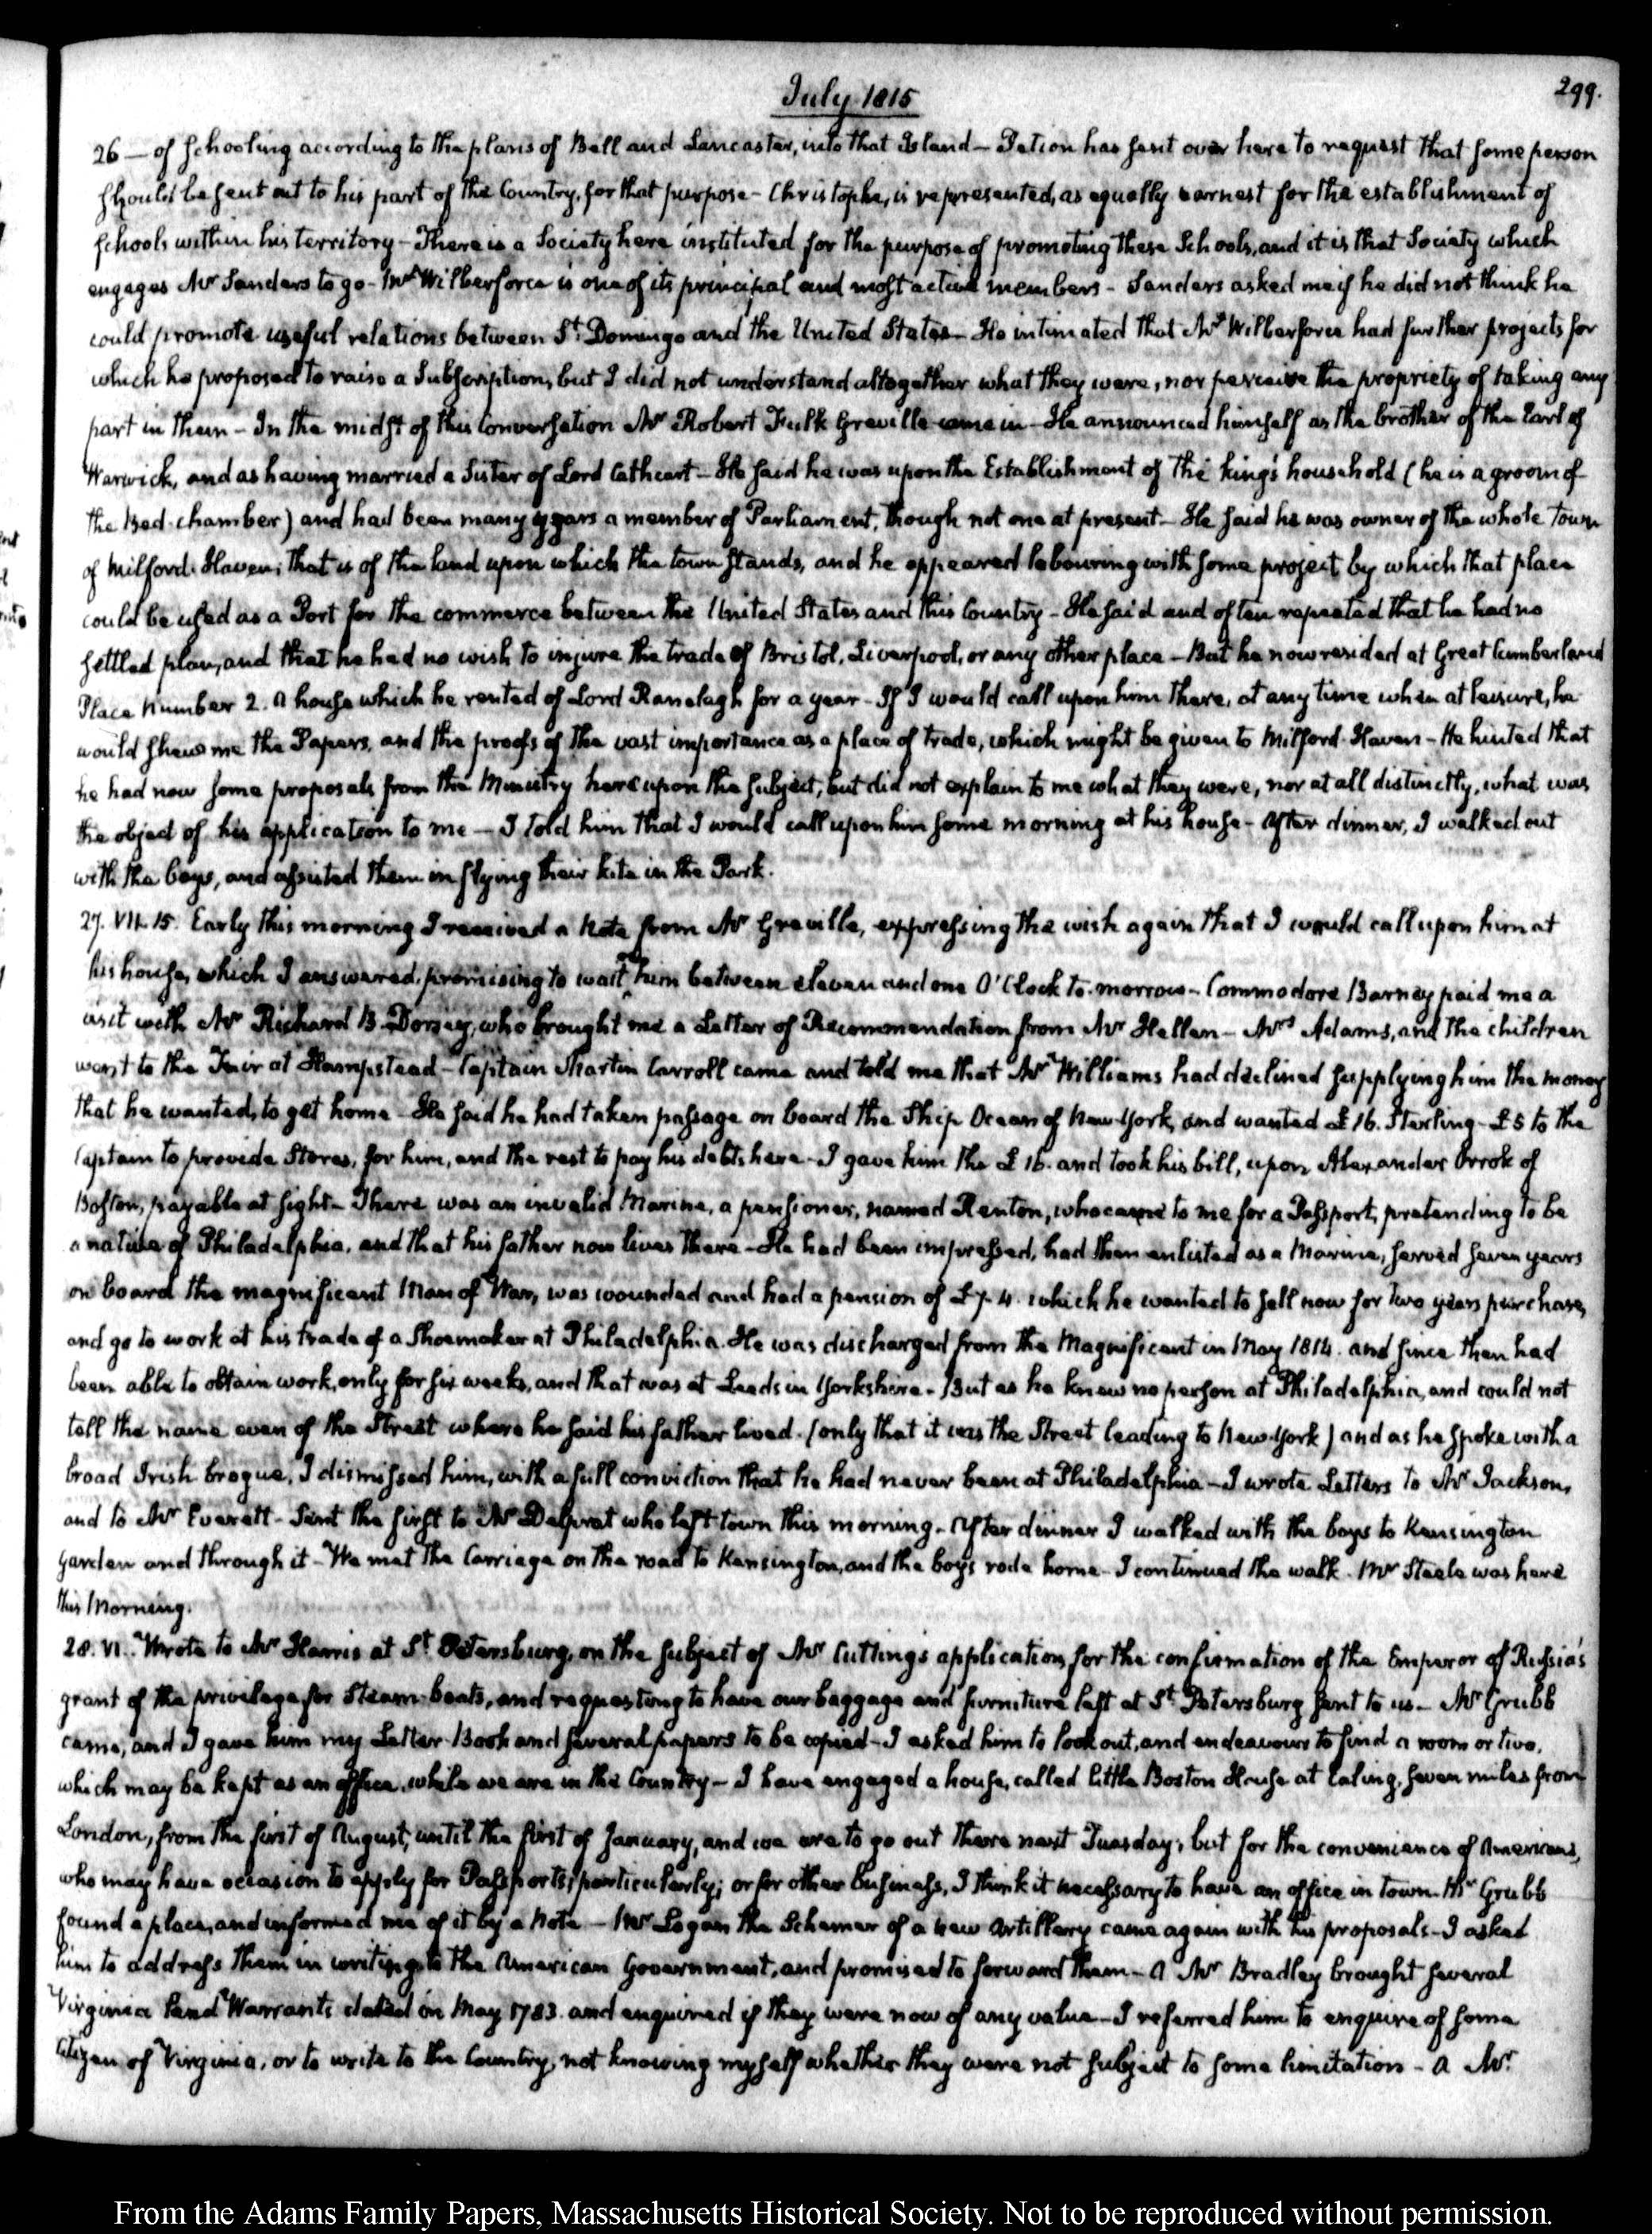 July 1815
299.
26 — of schooling according to the plans of Bell and Lancaster, into that Island – Petion has sent over here to request that some person
should be sent out to his part of the Country, for that purpose – Christophe, is represented, as equally earnest for the establishment of
schools within his territory – There is a Society here instituted for the purpose of promoting these Schools, and it is that Society which
engages Mr Sanders to go – Mr Wilberforce is one of its principal and most active members – Sanders asked me if he did not think he
could promote useful relations between St Domingo and the United States – He intimated that Mr Wilberforce had further projects for
which he proposed to raise a Subscription, but I did not understand altogether what they were, nor perceive the propriety of taking any
part in them – In the midst of this Conversation Mr Robert Fulk Greville came in – He announced himself as the brother of the Earl of
Warwick, and as having married a Sister of Lord Cathcart – He said he was upon the Establishment of the king's household (he is a groom of
the Bed-chamber) and had been many years a member of Parliament, though not one at present – He said he was owner of the whole town
of Milford-Haven; that is of the land upon which the town stands, and he appeared labouring with some project by which that place
could be used as a Port for the commerce between the United States and this Country – He said and often repeated that he had no
settled plan, and that he had no wish to injure the trade of Bristol, Liverpool, or any other place – But he now resided at Great Cumberland
Place Number 2. A house which he rented of Lord Ranelagh for a year – If I would call upon him there, at any time when at leisure, he
would shew me the Papers, and the proofs of the vast importance as a place of trade, which might be given to Milford-Haven – He hinted that
he had now some proposals from the Ministry here upon the subject, but did not explain to me what they were, nor at all distinctly, what was
the object of his application to me – I told him that I would call upon him some morning at his house – After dinner, I walked out
with the boys, and assisted them in flying their kite in the Park.
27. VII. 15. Early this morning I received a Note from Mr Greville, expressing the wish again that I would call upon him at
his house, which I answered, promising to wait on him between eleven and one O'Clock to-morrow – Commodore Barney paid me a
visit with Mr Richard B. Dorsey, who brought me a Letter of Recommendation from Mr Hellen – Mrs Adams, and the children
went to the Fair at Hampstead – Captain Martin Carroll came and told me that Mr Williams had declined supplying him the money
that he wanted, to get home – He said he had taken passage on board the Ship Ocean of New-York, and wanted £16. Sterling – £5 to the
Captain to provide Stores, for him, and the rest to pay his debts here – I gave him the £16. and took his bill, upon Alexander Orrok of
Boston, payable at sight – There was an invalid Marine, a pensioner, named Renton, who came to me for a Passport, pretending to be
a native of Philadelphia, and that his father now lives there – He had been impressed, had then enlisted as a Marine, served seven years
on board the magnificent Man of War, was wounded and had a pension of £7. 4. which he wanted to sell now for two years purchase,
and go to work at his trade of a Shoemaker at Philadelphia. He was discharged from the Magnificent in May 1814. and since then had
been able to obtain work, only for six weeks, and that was at Leeds in Yorkshire – But as he knew no person at Philadelphia, and could not
tell the name even of the Street where he said his father lived. (only that it was the Street leading to New-York) and as he spoke with a
broad Irish brogue, I dismissed him, with a full conviction that he had never been at Philadelphia – I wrote Letters to Mr Jackson,
and to Mr Everett – Sent the first to Mr Delprat who left town this morning. After dinner I walked with the boys to Kensington
Garden and through it – We met the Carriage on the road to Kensington, and the boys rode home – I continued the walk. Mr Steele was here
this Morning.
28. VI. Wrote to Mr Harris at St Petersburg, on the subject of Mr Cutting's application, for the confirmation of the Emperor of Russia's
grant of the privilege for Steam-boats, and requesting to have our baggage and furniture left at St Petersburg sent to us – Mr Grubb
came, and I gave him my Letter-Book and several papers to be copied – I asked him to look out, and endeavour to find a room or two,
which may be kept as an office, while we are in the Country – I have engaged a house, called little Boston House at Ealing, seven miles from
London, from the first of August, until the first of January, and we are to go out there next Tuesday; but for the convenience of Americans,
who may have occasion to apply for Passports, particularly; or for other business, I think it necessary to have an office in town. Mr Grubb
found a place, and informed me of it by a Note – Mr Logan the Schemer of a new artillery came again with his proposals – I asked
him to address them in writing to the American Government, and promised to forward them – A Mr Bradley brought several
Virginia Land Warrants dated in May 1783. and enquired if they were now of any value – I referred him to enquire of some
Citizen of Virginia, or to write to the Country, not knowing myself whether they were not subject to some limitation – A Mr
From the Adams Family Papers, Massachusetts Historical Society. Not to be reproduced without permission.